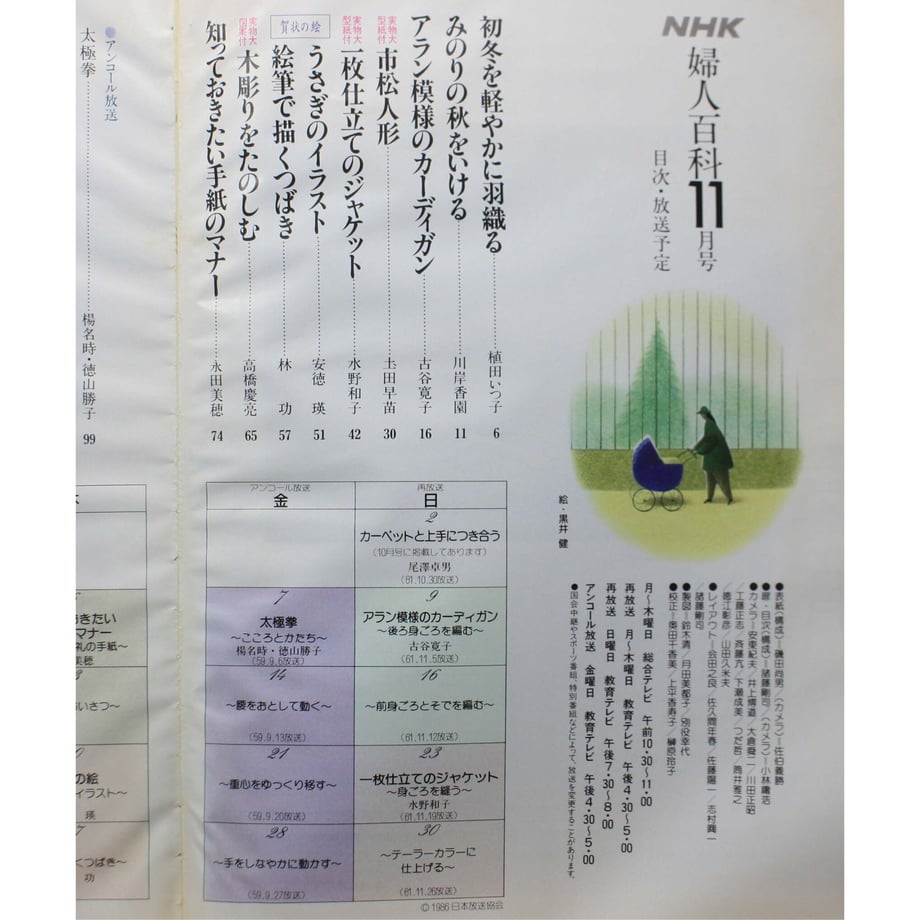 NHK
婦人百科11月号
目次・放送予定
絵・黒井 健
初冬を軽やかに羽織る 植田いつ子 6
みのりの秋をいける 川岸香園 11
アラン模様のカーディガン 古谷寛子 16
実物大型紙付
市松人形 土田早苗 30
実物大型紙付
一枚仕立てのジャケット 水野和子 42
賀状の絵
うさぎのイラスト 安徳 瑛 51
絵筆で描くつばき 林 功 57
実物大図案付
木彫りをたのしむ 高橋慶亮 65
知っておきたい手紙のマナー 永田美穂 74
●アンコール放送
太極拳 楊名時・徳山勝子 99
●表紙〈構成〉＝磯田尚男／〈カメラ〉＝佐伯義勝
●扉・目次〈構成〉＝諸藤剛司／〈カメラ〉＝小林庸浩
●カメラ＝安東紀夫／井上博道／大倉舜二／川田正昭
／工藤正志／斉藤亢／下瀬成美／つだ哲／筒井雅之
／徳江彰彦／山田久米夫
●レイアウト＝会田之良／佐久間年春／佐藤陽一／志村興一
／諸藤剛司
●製図＝鈴木清／月田美都子／別役幸代
●校正＝奥田千香美／上平香寿子／榊原玲子
月〜木曜日 総合テレビ 午前10・30〜11・00
再放送 月〜木曜日 教育テレビ 午後4・30〜5・00
再放送 日曜日 教育テレビ 午後7・30〜8・00
アンコール放送 金曜日 教育テレビ 午後4・30〜5・00
●国会中継やスポーツ番組、特別番組などによって、放送を変更することがあります。
再放送
日
2
カーペットと上手につき合う
(10月号に掲載してあります)
尾澤卓男
(61.10.30放送)
9
アラン模様のカーディガン
〜後ろ身ごろを編む〜
古谷寛子
(61.11.5放送)
16
〜前身ごろとそでを編む〜
(61.11.12放送)
23
一枚仕立てのジャケット
〜身ごろを縫う〜
水野和子
(61.11.19放送)
30
〜テーラーカラーに
仕上げる〜
(61.11.26放送)
アンコール放送
金
7
太極拳
〜こころとかたち〜
楊名時・徳山勝子
(59.9.6放送)
14
〜腰をおとして動く〜
(59.9.13放送)
21
〜重心をゆっくり移す〜
(59.9.20放送)
28
〜手をしなやかに動かす〜
(59.9.27放送)
おきたい
マナー
礼の手紙〜
美穂
いさつ〜
の絵
イラスト〜
瑛
くつばき〜
功
©1986 日本放送協会